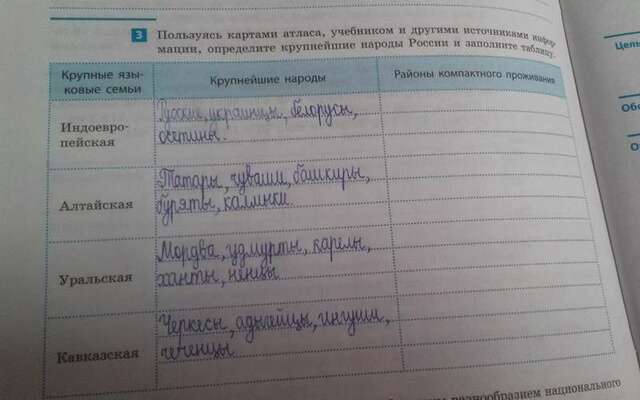 3 Пользуясь картами атласа, учебником и другими источниками инфор-
мации, определите крупнейшие народы России и заполните таблицу.
Крупные язы-
ковые семьи
Крупнейшие народы
Районы компактного проживания
Индоевро-
пейская
Русские, украинцы, белорусы,
осетины.
Алтайская
Татары, чуваши, башкиры,
буряты, калмыки
Уральская
Мордва, удмурты, карелы,
ханты, ненцы
Кавказская
Черкесы, адыгейцы, ингуши,
чеченцы
разнообразием национального